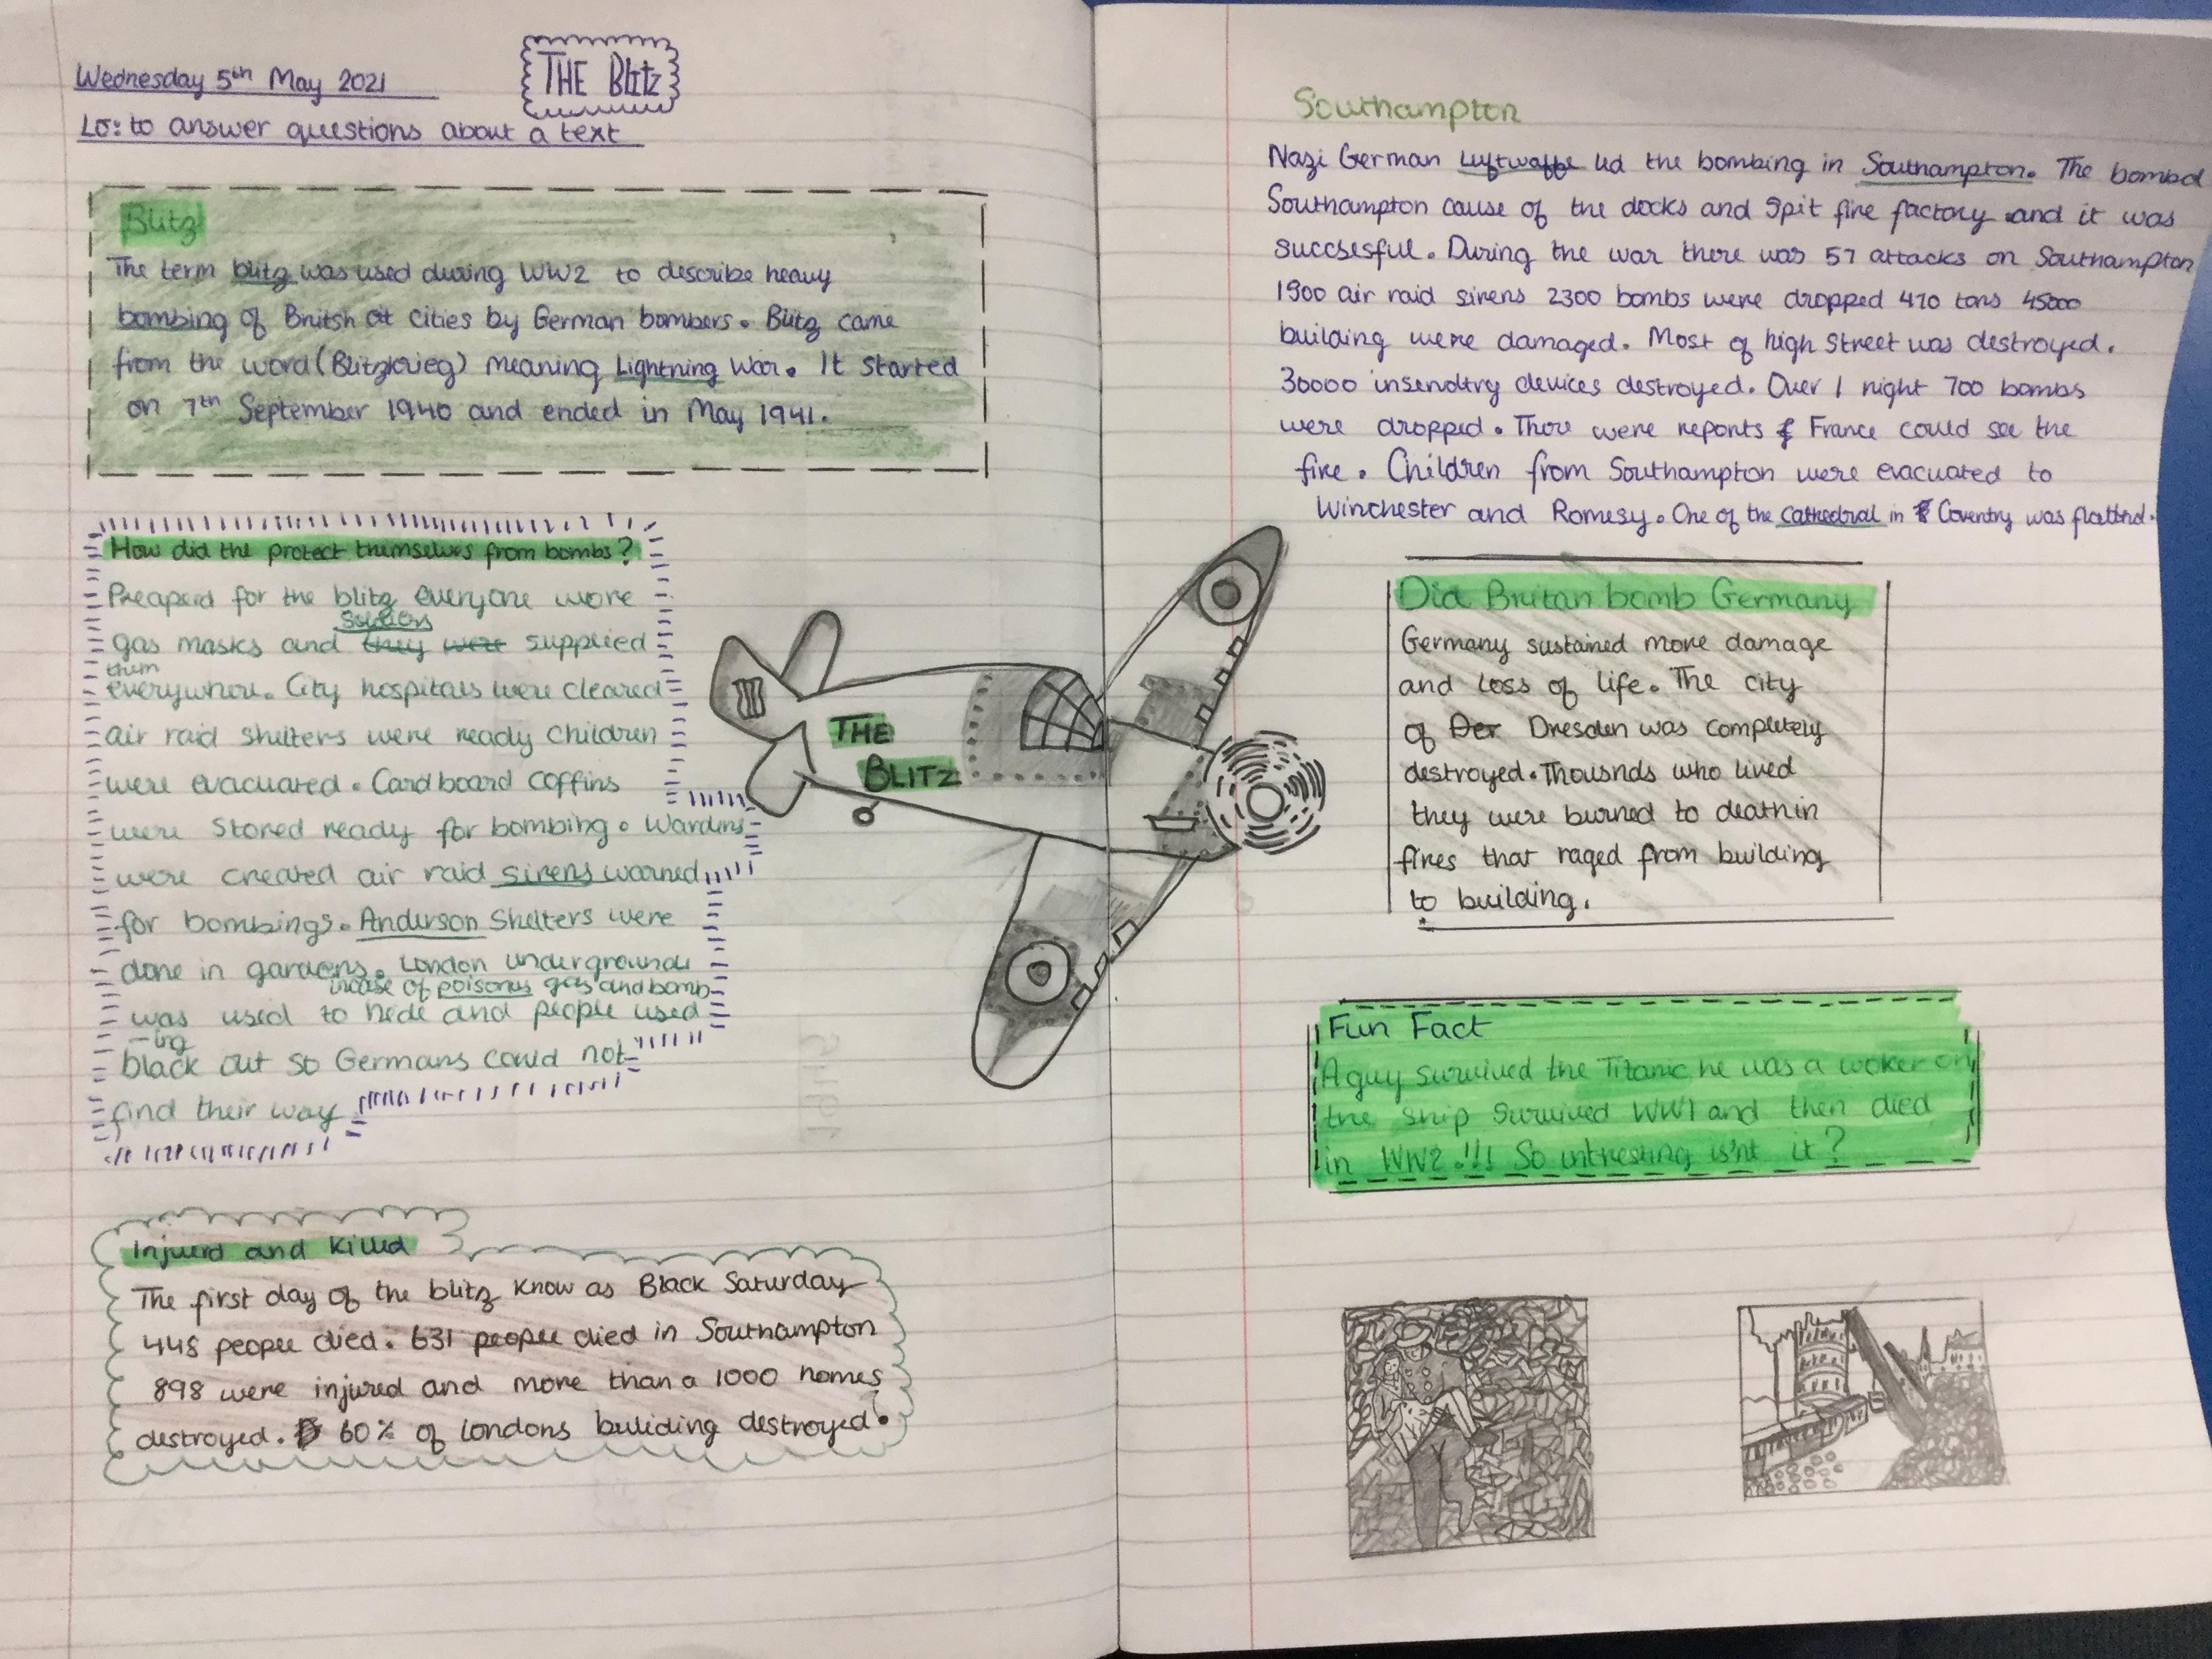 Wednesday 5th May 2021
THE Blitz
LO: to answer questions about a text
Blitz
The term blitz was used during WW2 to describe heavy
bombing of Britsh cities by German bombers. Blitz came
from the word (Blitzkrieg) meaning Lightning War. It started
on 7th September 1940 and ended in May 1941.
How did the protect themselves from bombs?
Preaperd for the blitz everyone wore
gas masks and they were supplied
them
everywhere. City hospitals were cleared
air raid shelters were ready children
were evacuated. Cardboard coffins
were stored ready for bombing. Wardens
were created air raid sirens warned
for bombings. Anderson Shelters were
done in gardens. London underground
incase of poisonus gas and bomb
was used to hide and people used
-ing
black out so Germans could not
find their way
THE
BLITZ
Injuerd and killed
The first day of the blitz know as Black Saturday
448 people died. 631 people died in Southampton
898 were injured and more than a 1000 homes
destroyed. 60% of Londons buliding destroyed.
Southampton
Nazi German Luftwaffe led the bombing in Southampton. The bombed
Southampton cause of the docks and Spit fire factory and it was
succsesful. During the war there was 57 attacks on Southampton
1500 air raid sirens 2300 bombs were dropped 470 tons 45000
building were damaged. Most of high Street was destroyed.
30000 insendtry devices destroyed. Over 1 night 700 bombs
were dropped. There were reports France could see the
fire. Children from Southampton were evacuated to
Winchester and Romesy. One of the cathedral in Coventry was flattend.
Did Britan bomb Germany
Germany sustained more damage
and loss of life. The city
of Der Dresden was completely
destroyed. Thousnds who lived
they were burned to death in
fires that raged from building
to building.
Fun Fact
A guy survived the Titanic he was a woker on
the ship survived WW1 and then died
in WW2.!!! So intresting is'nt it?